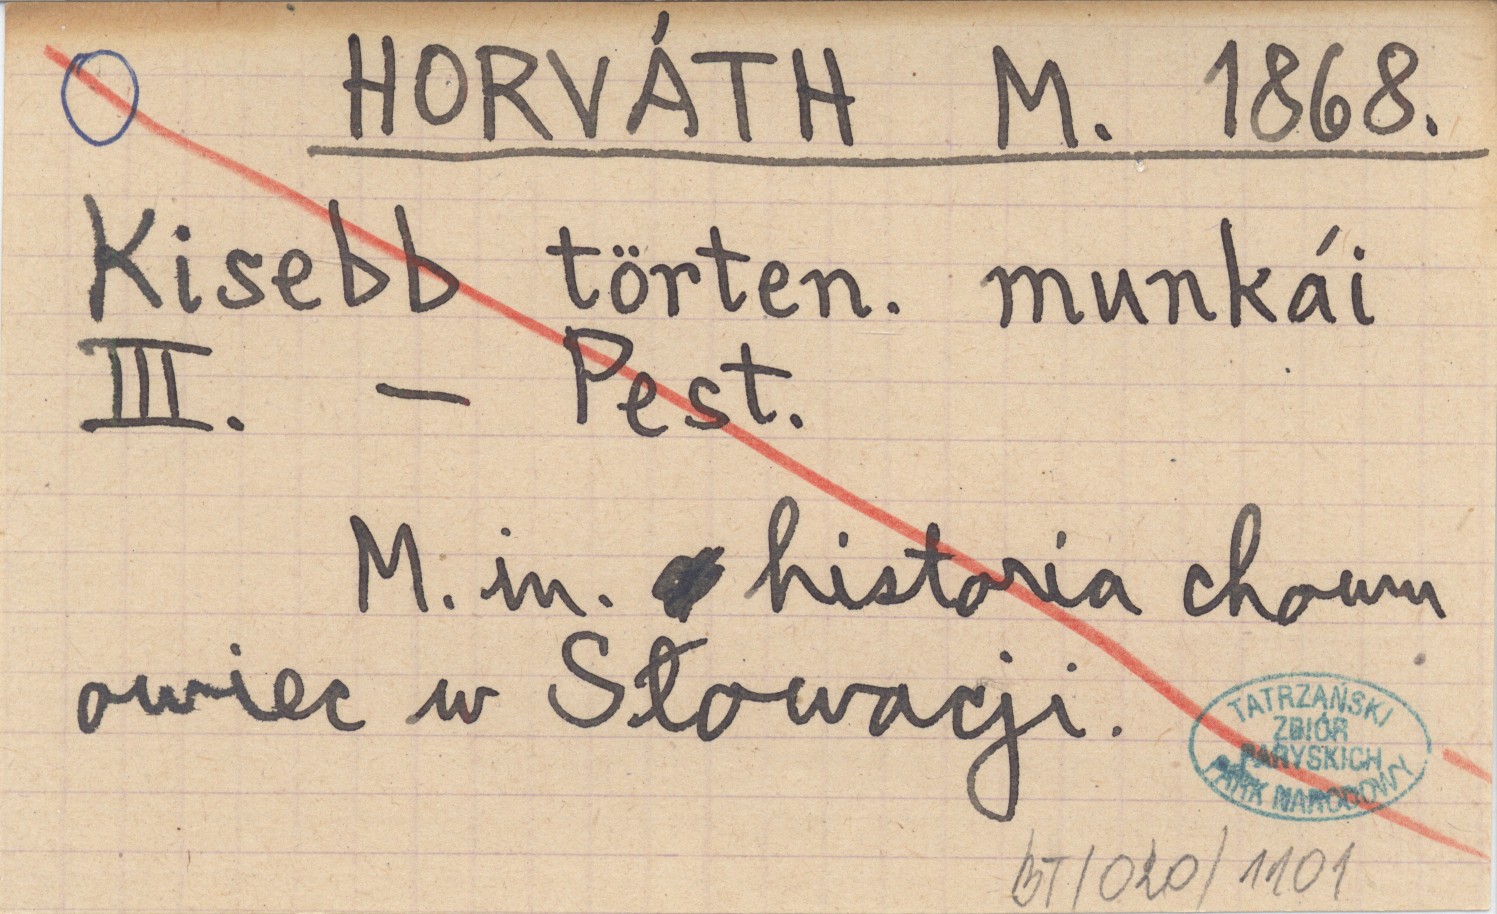 HORVÁTH M. 1868.
Kisebb törten. munkái
III. — Pest.
M. in. historia chowu
owiec w Słowacji.
TATRZAŃSKI
ZBIÓR
PARYSKICH
PARK NARODOWY
BT/020/1101